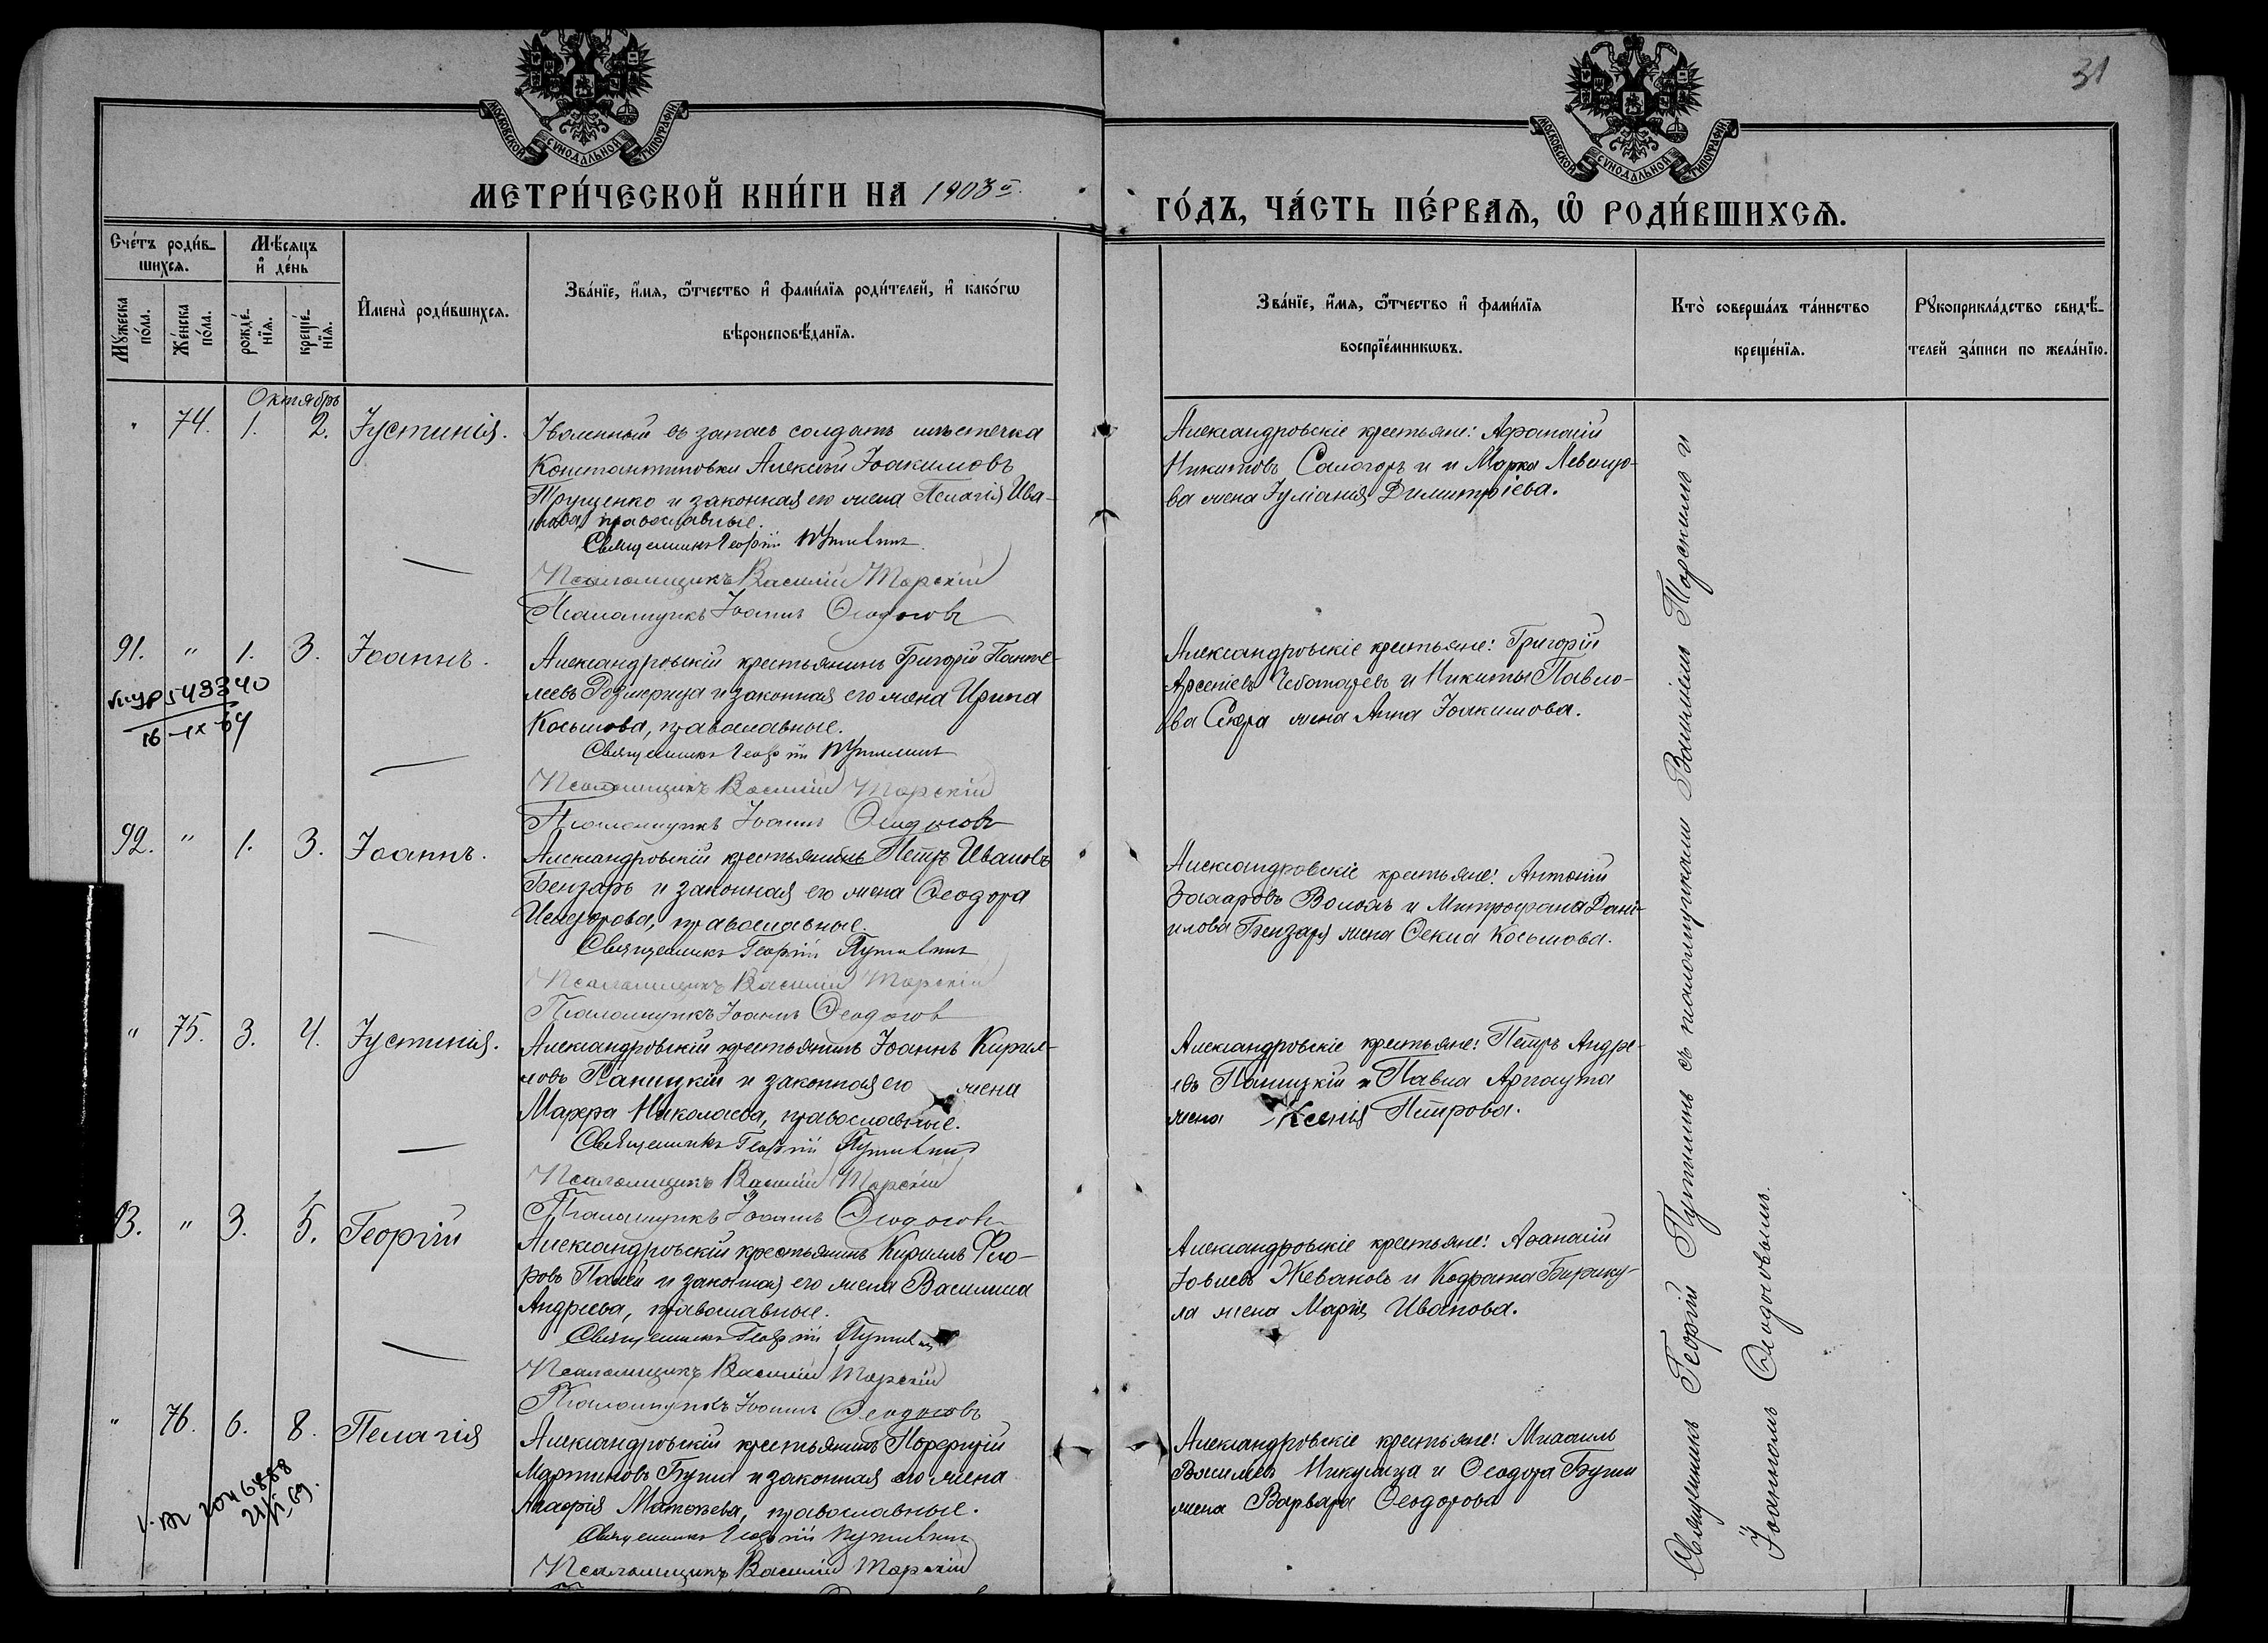 31
МОСКОВСКОЙ СѴНОДАЛЬНОЙ ТИПОГРАФІИ
МОСКОВСКОЙ СѴНОДАЛЬНОЙ ТИПОГРАФІИ
МЕТРИ́ЧЕСКОЙ КНИ́ГИ НА 1903й.
ГО́ДЪ, ЧА́СТЬ ПЕ́РВАѦ, Ѽ РОДИ́ВШИХСѦ.
Сче́тъ роди́в-
шихсѧ.
Мѣ́сѧцъ
и҆ де́нь
Мꙋ́жеска по́ла.
Же́нска по́ла.
рожде́-
нїѧ.
креще́-
нїѧ.
И҆мена̀ роди́вшихсѧ.
Зва́нїе, и҆́мѧ, ѻ҆́тчество и҆ фами́лїѧ роди́телей, и҆ како́гѡ
вѣроисповѣ́данїѧ.
Зва́нїе, и҆́мѧ, ѻ҆́тчество и҆ фами́лїѧ
воспрїе́мникѡвъ.
Кто̀ соверша́лъ та́инство
креще́нїѧ.
Рꙋкоприкла́дство свидѣ́-
телей за́писи по жела́нїю.
Октябрь
" 74. 1. 2. Іустинія.
Уволенный въ запасъ солдатъ мѣстечка
Константиновки Алексѣй Іоакимовъ
Трущенко и законная его жена Пелагія Ива-
нова, православные.
Священникъ Георгій Путилинъ
Псаломщикъ Василій Торскій
Псаломщикъ Іоаннъ Ѳеодосовъ
Александровскіе крестьяне: Афанасій
Никитовъ Салогоръ и Марка
жена Іуліанія Димитріева.
91. " 1. 3. Іоаннъ.
543340
16-IX-64
Александровскій крестьянинъ Григорій Панте-
леевъ Розмерица и законная его жена Ирина
Косьмова, православные.
Священникъ Георгій Путилинъ
Псаломщикъ Василій Торскій
Псаломщикъ Іоаннъ Ѳеодосовъ
Александровскіе крестьяне: Григорій
Арсеніевъ Чеботаревъ и Никиты Павло-
ва жена Анна Іоакимова.
92. " 1. 3. Іоаннъ.
Александровскій крестьянинъ Петръ Ивановъ
Бензарь и законная его жена Ѳеодора
православные.
Священникъ Георгій Путилинъ
Псаломщикъ Василій Торскій
Псаломщикъ Іоаннъ Ѳеодосовъ
Александровскіе крестьяне: Антоній
Захаровъ Воложъ и Митрофана Дани-
илова Бензаря жена Ѳекла Косьмова.
" 75. 3. 4. Іустинія.
Александровскій крестьянинъ Іоаннъ Кирил-
ловъ Паницкій и законная его жена
Марѳа Николаева, православные.
Священникъ Георгій Путилинъ
Псаломщикъ Василій Торскій
Псаломщикъ Іоаннъ Ѳеодосовъ
Александровскіе крестьяне: Петръ Андре-
евъ Паницкій и Павла Арнаута
жена Ксенія Петрова.
93. " 3. 5. Георгій
Александровскій крестьянинъ Кириллъ Фло-
ровъ Палій и законная его жена Василиса
Андреева, православные.
Священникъ Георгій Путилинъ
Псаломщикъ Василій Торскій
Псаломщикъ Іоаннъ Ѳеодосовъ
Александровскіе крестьяне: Аѳанасій
Іовлевъ Жевановъ и Кодрата Бирику-
ла жена Марія Иванова.
" 76. 6. 8. Пелагія
Александровскій крестьянинъ Порфирій
Мартиновъ Буга и законная его жена
Агафія Матѳеева, православные.
Священникъ Георгій Путилинъ
Псаломщикъ Василій Торскій
Александровскіе крестьяне: Михаилъ
Васильевъ Никулица и Ѳеодора Буги
жена Варвара Ѳеодорова
Священникъ Георгій Путилинъ съ псаломщиками Василіемъ Торскимъ и
Іоанномъ Ѳеодосовымъ.